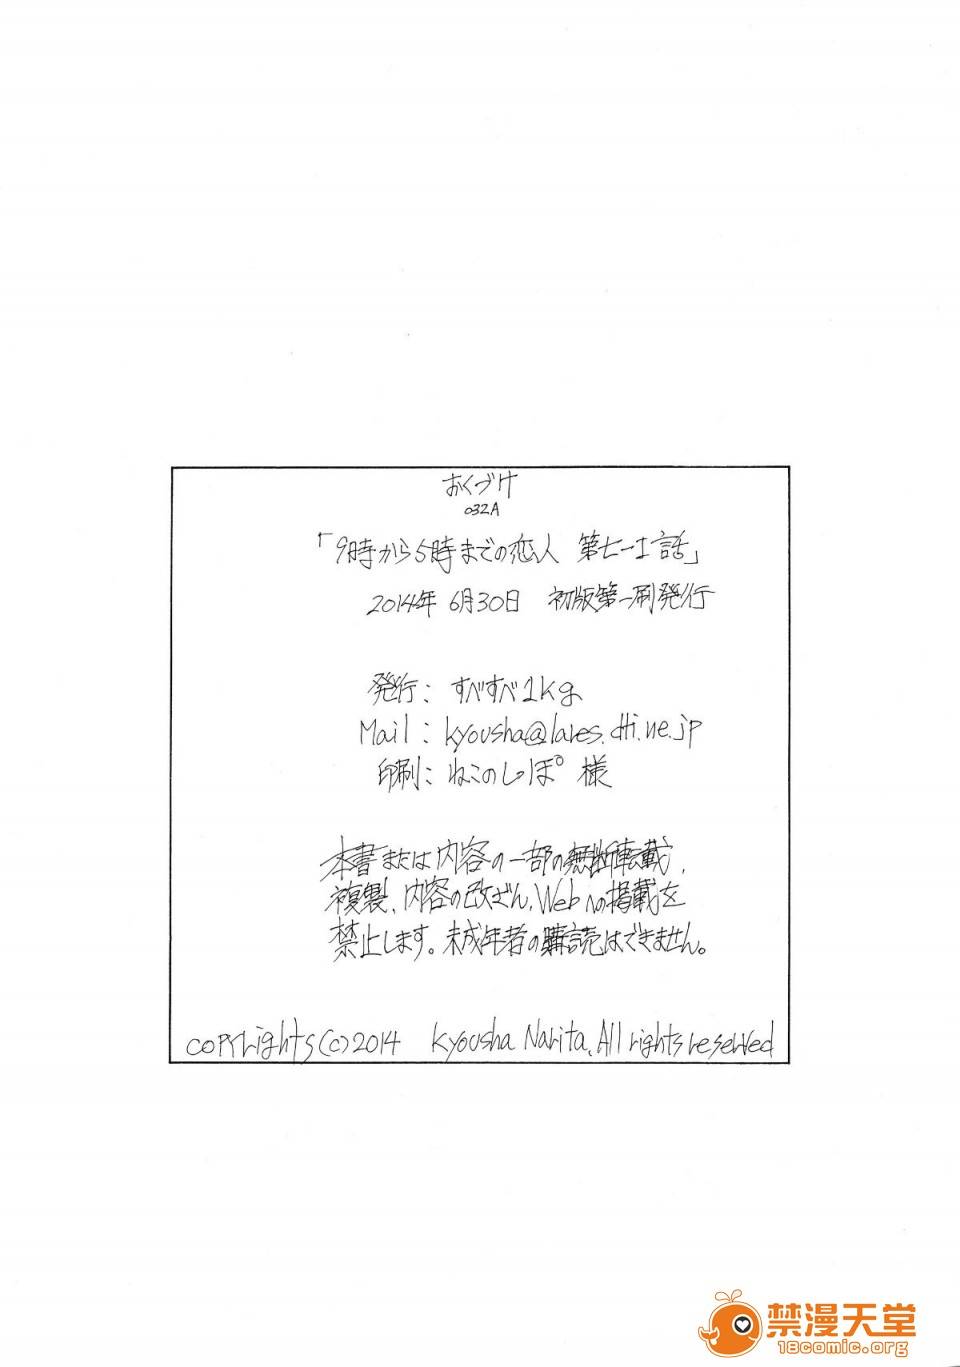 おくづけ
032A
「9時から5時までの恋人 第七-I話」
2014年 6月30日 初版第一刷発行
発行: すべすべ1kg
Mail: kyousha@lares.dti.ne.jp
印刷: ねこのしっぽ 様
本書または内容の一部の無断転載、
複製、内容の改ざん、Webへの掲載を
禁止します。未成年者の購読はできません。
copyrights(c)2014 Kyousha Narita, All rights reserved
禁漫天堂
18comic.org